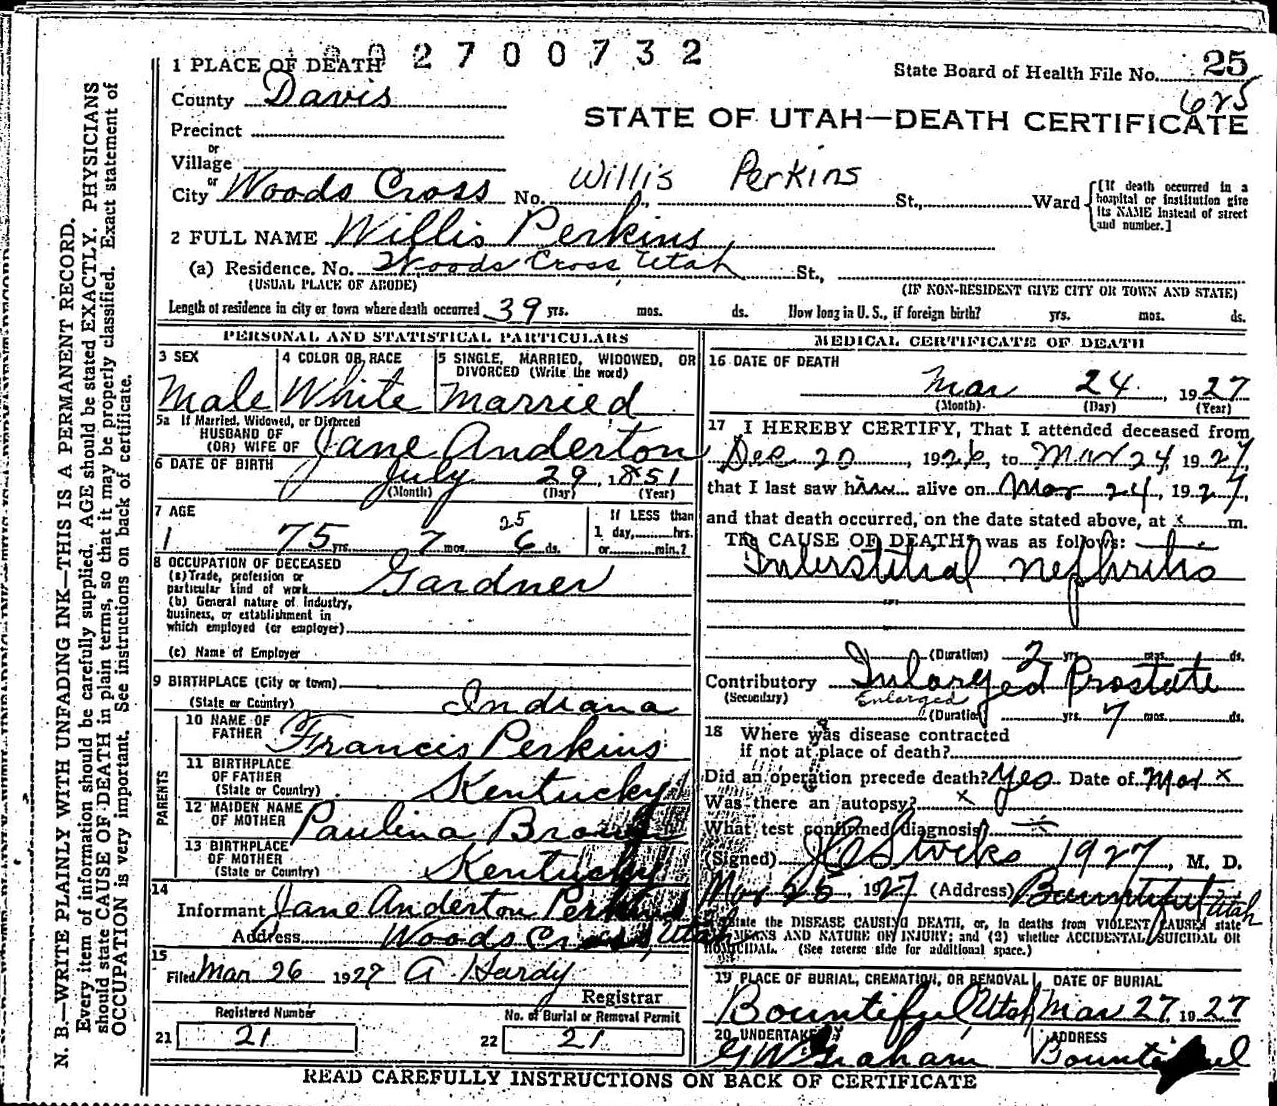 2 0 2 7 0 0 7 3 2
1 PLACE OF DEATH
State Board of Health File No. 25
625
County Davis
STATE OF UTAH—DEATH CERTIFICATE
Precinct
or
Village
or
City Woods Cross No. Willis Perkins St., Ward
[If death occurred in a hospital or institution give its NAME instead of street and number.]
2 FULL NAME Willis Perkins
(a) Residence. No. Woods Cross, Utah St.,
(USUAL PLACE OF ABODE) (IF NON-RESIDENT GIVE CITY OR TOWN AND STATE)
Length of residence in city or town where death occurred 39 yrs. mos. ds. How long in U. S., if foreign birth? yrs. mos. ds.
PERSONAL AND STATISTICAL PARTICULARS
3 SEX
Male
4 COLOR OR RACE
White
5 SINGLE, MARRIED, WIDOWED, OR
DIVORCED (Write the word)
Married
5a If Married, Widowed, or Divorced
HUSBAND OF
(OR) WIFE OF Jane Anderton
6 DATE OF BIRTH July 29, 1851
(Month) (Day) (Year)
7 AGE
25
1 75 yrs. 7 mos. 6 ds.
If LESS than
1 day, hrs.
or min.?
8 OCCUPATION OF DECEASED
(a) Trade, profession or
particular kind of work Gardner
(b) General nature of Industry,
business, or establishment in
which employed (or employer)
(c) Name of Employer
9 BIRTHPLACE (City or town)
(State or Country) Indiana
PARENTS
10 NAME OF
FATHER Francis Perkins
11 BIRTHPLACE
OF FATHER
(State or Country) Kentucky
12 MAIDEN NAME
OF MOTHER Paulina Brown
13 BIRTHPLACE
OF MOTHER
(State or Country) Kentucky
14
Informant Jane Anderton Perkins
Address Woods Cross, Utah
15
Filed Mar 26 1927 A Hardy
Registrar
Registered Number
21 21
No. of Burial or Removal Permit
22 21
MEDICAL CERTIFICATE OF DEATH
16 DATE OF DEATH
Mar 24, 1927
(Month) (Day) (Year)
17 I HEREBY CERTIFY, That I attended deceased from
Dec 20, 1926, to Mar 24, 1927,
that I last saw him alive on Mar 24, 1927,
and that death occurred, on the date stated above, at x m.
The CAUSE OF DEATH* was as follows:
Interstitial nephritis
(Duration) 2 yrs. mos. ds.
Contributory Inlarged Prostate
(Secondary) Enlarged
(Duration) yrs. 7 mos. ds.
18 Where was disease contracted
if not at place of death?
Did an operation precede death? Yes. Date of Mar x
Was there an autopsy? x
What test confirmed diagnosis?
(Signed) 1927, M. D.
Mar 26 1927 (Address) Bountiful Utah
*State the DISEASE CAUSING DEATH, or, in deaths from VIOLENT CAUSES, state
(1) MEANS AND NATURE OF INJURY; and (2) whether ACCIDENTAL, SUICIDAL OR
HOMICIDAL. (See reverse side for additional space.)
19 PLACE OF BURIAL, CREMATION, OR REMOVAL
Bountiful, Utah
DATE OF BURIAL
Mar 27 1927
20 UNDERTAKER
G W Graham
ADDRESS
Bountiful
READ CAREFULLY INSTRUCTIONS ON BACK OF CERTIFICATE
N. B.—WRITE PLAINLY WITH UNFADING INK—THIS IS A PERMANENT RECORD.
Every item of information should be carefully supplied. AGE should be stated EXACTLY. PHYSICIANS
should state CAUSE OF DEATH in plain terms, so that it may be properly classified. Exact statement of
OCCUPATION is very important. See instructions on back of certificate.